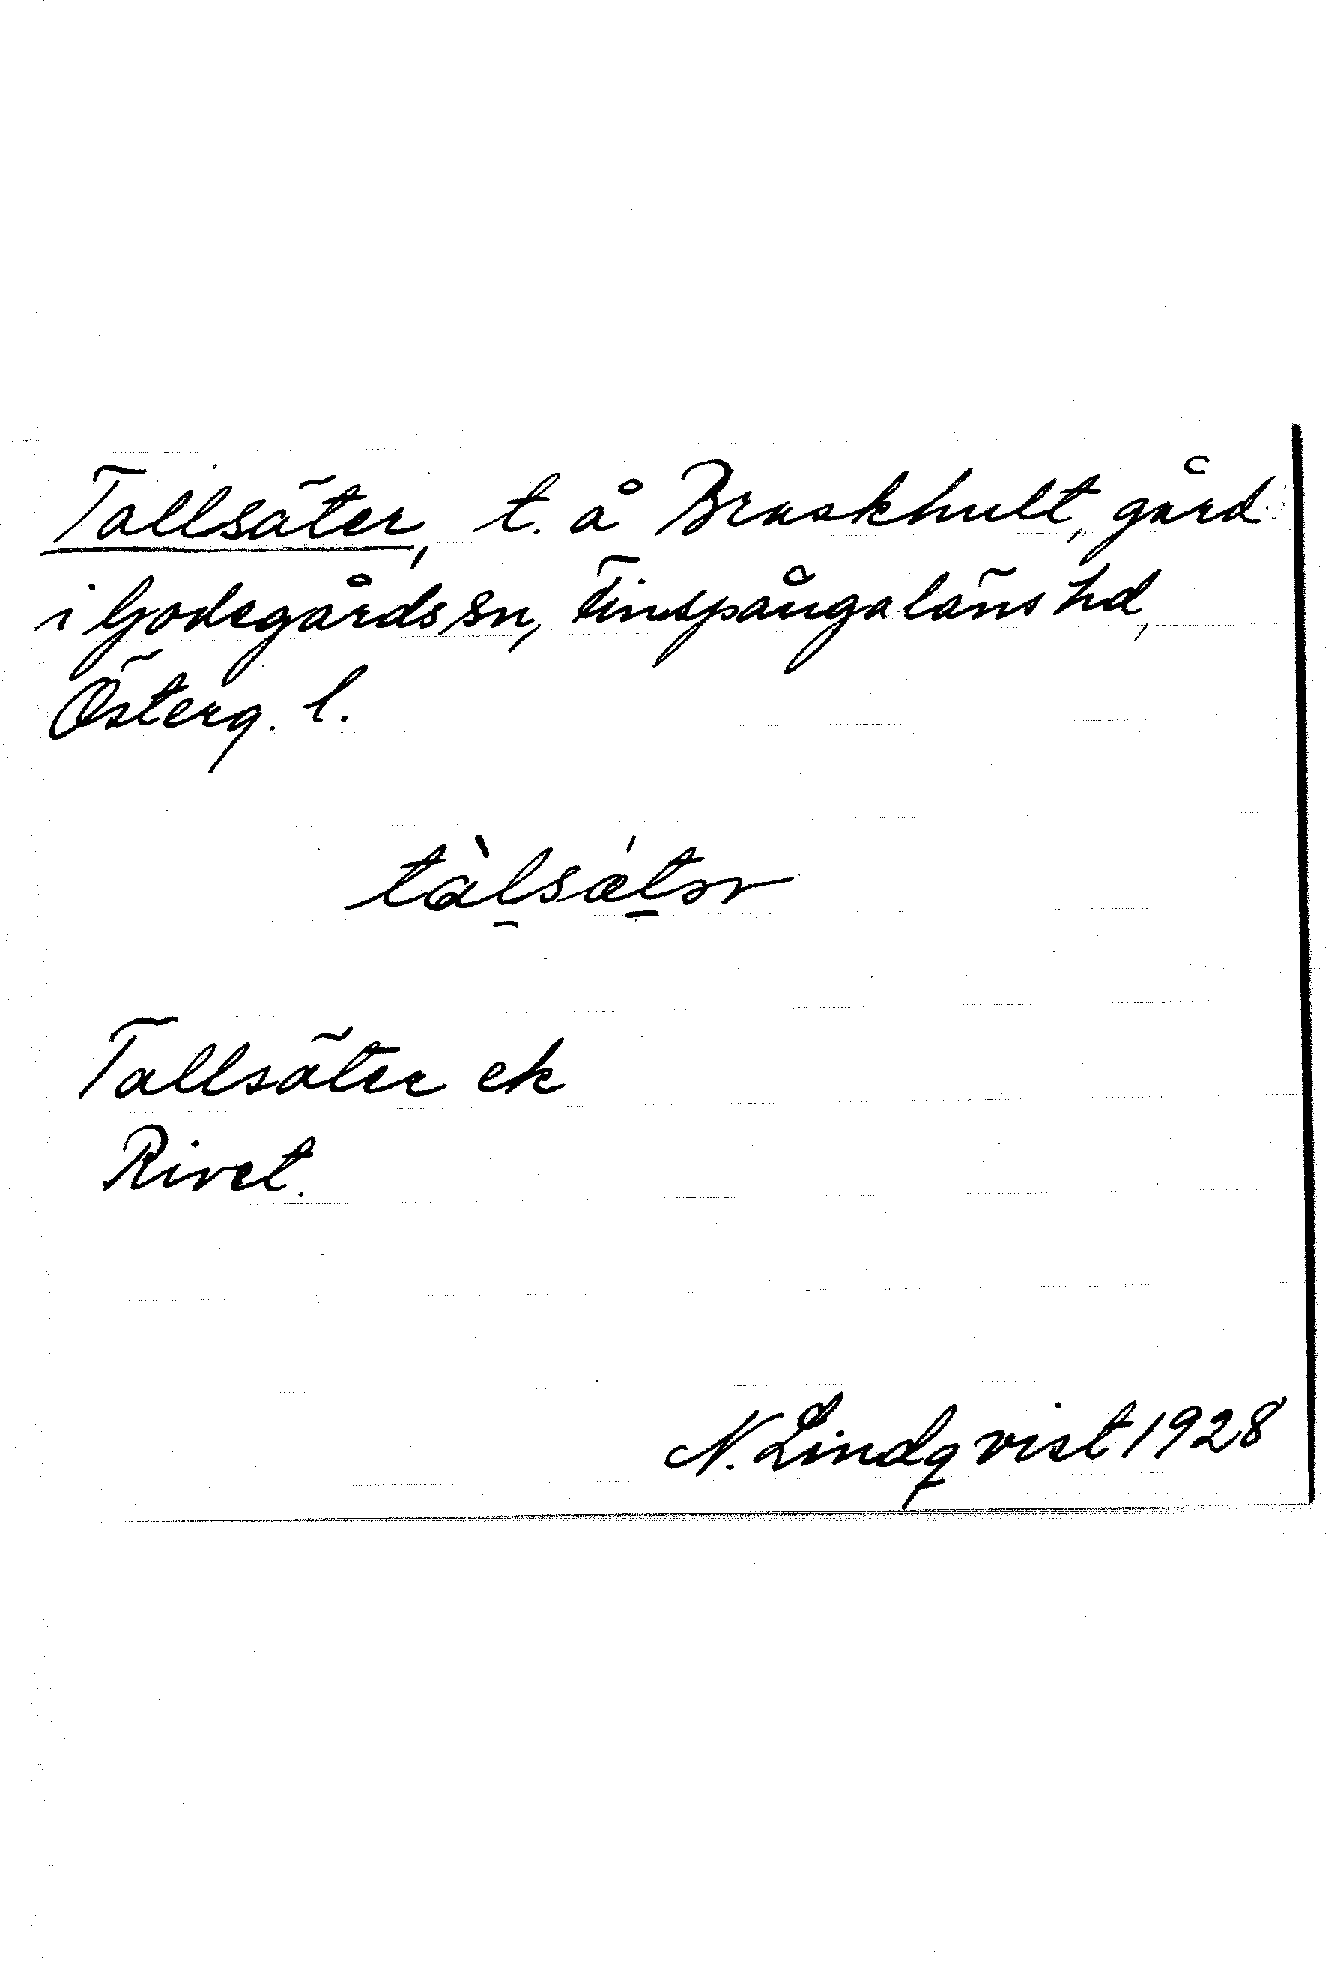 Tallsäter, t. å Braskhult, gård
i Godegårds sn, Finspånga läns hd,
Österg. l.
tàlsǽtər
Tallsäter ek
Rivet.
N. Lindqvist 1928